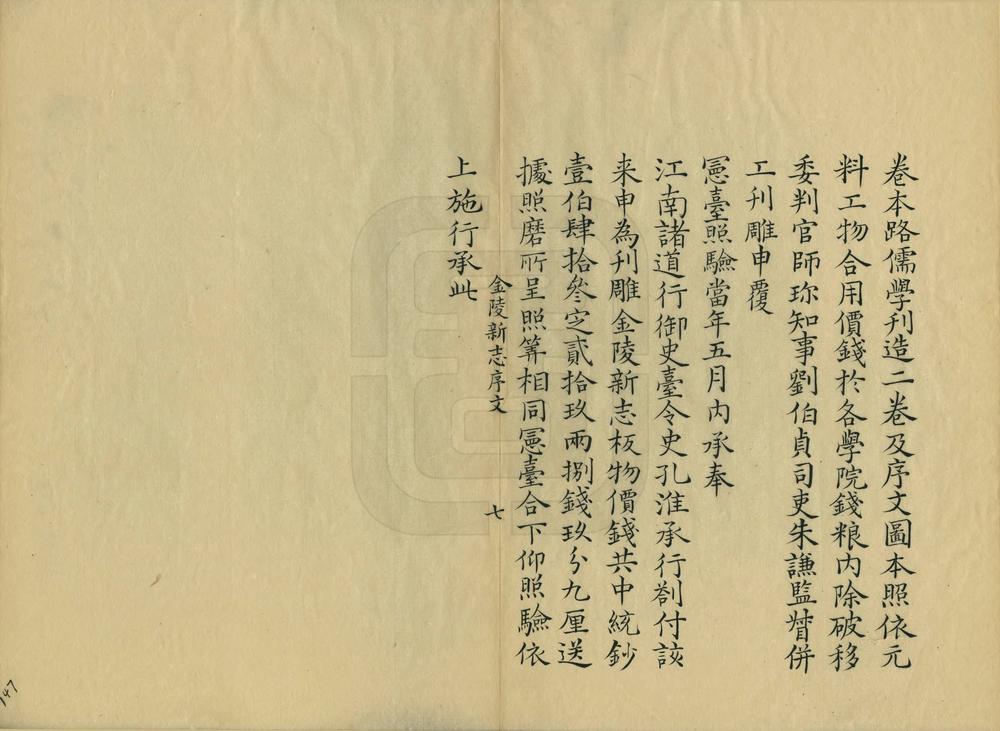 卷本路儒學刊造二卷及序文圖本照依元
料工物合用價錢於各學院錢粮内除破移
委判官師珎知事劉伯貞司吏朱謙監督併
工刋雕申覆
憲臺照驗當年五月内承奉
江南諸道行御史臺令史孔淮承行劄付該
来申為刋雕金陵新志板物價錢共中統鈔
壹伯肆拾叄定貳拾玖兩捌錢玖分九厘送
據照磨所呈照筭相同憲臺合下仰照驗依
上施行承此
金陵新志序文
七
147